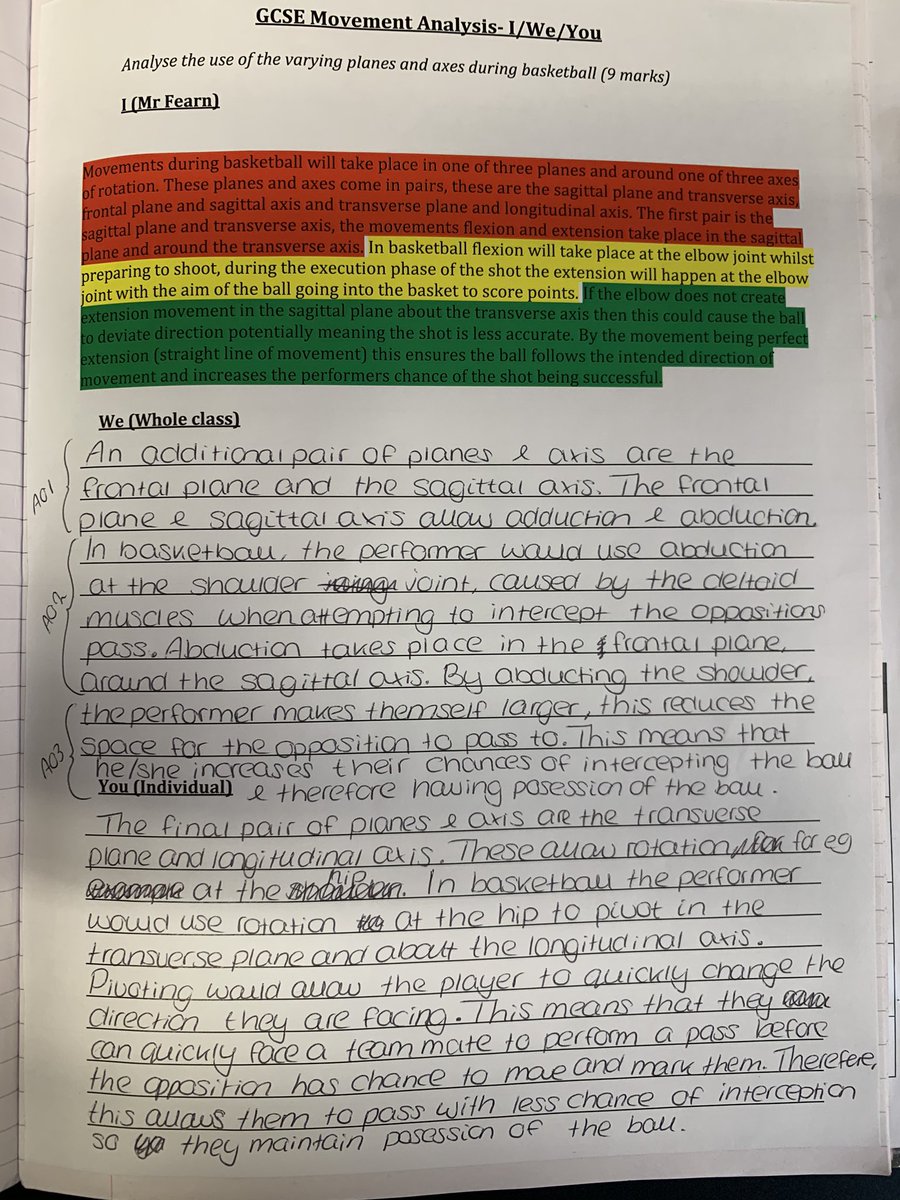 GCSE Movement Analysis- I/We/You
Analyse the use of the varying planes and axes during basketball (9 marks)
I (Mr Fearn)
Movements during basketball will take place in one of three planes and around one of three axes
of rotation. These planes and axes come in pairs, these are the sagittal plane and transverse axis,
frontal plane and sagittal axis and transverse plane and longitudinal axis. The first pair is the
sagittal plane and transverse axis, the movements flexion and extension take place in the sagittal
plane and around the transverse axis. In basketball flexion will take place at the elbow joint whilst
preparing to shoot, during the execution phase of the shot the extension will happen at the elbow
joint with the aim of the ball going into the basket to score points. If the elbow does not create
extension movement in the sagittal plane about the transverse axis then this could cause the ball
to deviate direction potentially meaning the shot is less accurate. By the movement being perfect
extension (straight line of movement) this ensures the ball follows the intended direction of
movement and increases the performers chance of the shot being successful.
We (Whole class)
An additional pair of planes & axis are the
AO1 frontal plane and the sagittal axis. The frontal
plane & sagittal axis allow adduction & abduction.
In basketball, the performer would use abduction
at the shoulder joint, caused by the deltoid
AO2 muscles when attempting to intercept the oppositions
pass. Abduction takes place in the frontal plane,
around the sagittal axis. By abducting the shoulder,
the performer makes themself larger, this reduces the
AO3 space for the opposition to pass to. This means that
he/she increases their chances of intercepting the ball
You (Individual) & therefore having posession of the ball.
The final pair of planes & axis are the transverse
plane and longitudinal axis. These allow rotation, for eg
at the hip. In basketball the performer
would use rotation at the hip to pivot in the
transverse plane and about the longitudinal axis.
Pivoting would allow the player to quickly change the
direction they are facing. This means that they
can quickly face a team mate to perform a pass before
the opposition has chance to move and mark them. Therefore,
this allows them to pass with less chance of interception
so they maintain posession of the ball.